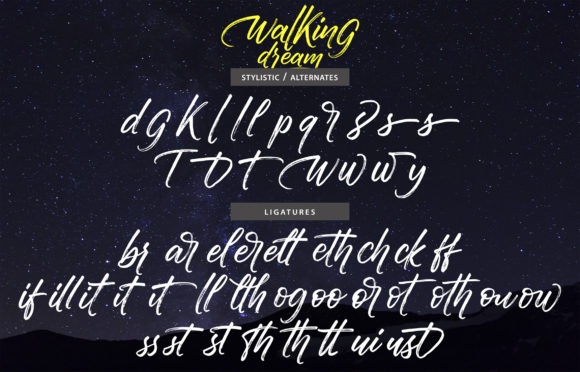 Walking
dream
STYLISTIC / ALTERNATES
d g K l l l p q r s s s
T D T t W w w y
LIGATURES
br ar el er ett eth ch ck ff
if ill it it it ll lth og oo or ot oth ou ow
ss st st th th tt ui ust